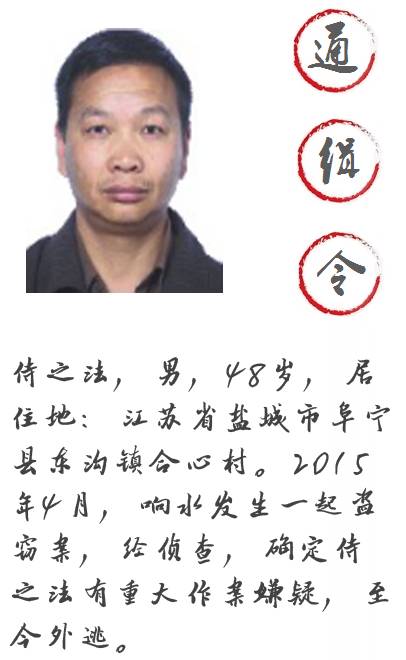 通
缉
令
侍之法，男，48岁，居
住地：江苏省盐城市阜宁
县东沟镇合心村。2015
年4月，响水发生一起盗
窃案，经侦查，确定侍
之法有重大作案嫌疑，至
今外逃。